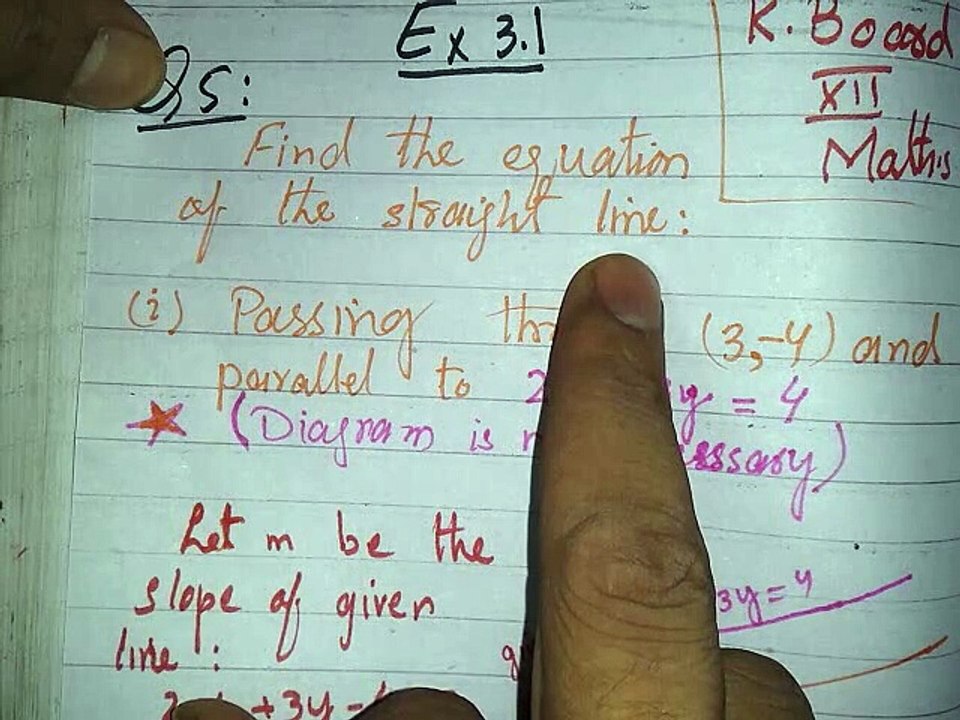 Ex 3.1
K. Board
XII
Maths
Q5:
Find the equation
of the straight line:
(i) Passing (3,-4) and
parallel to 2 y = 4
(Diagram is
Let m be the
slope of given
line:
3y=4
+3y-